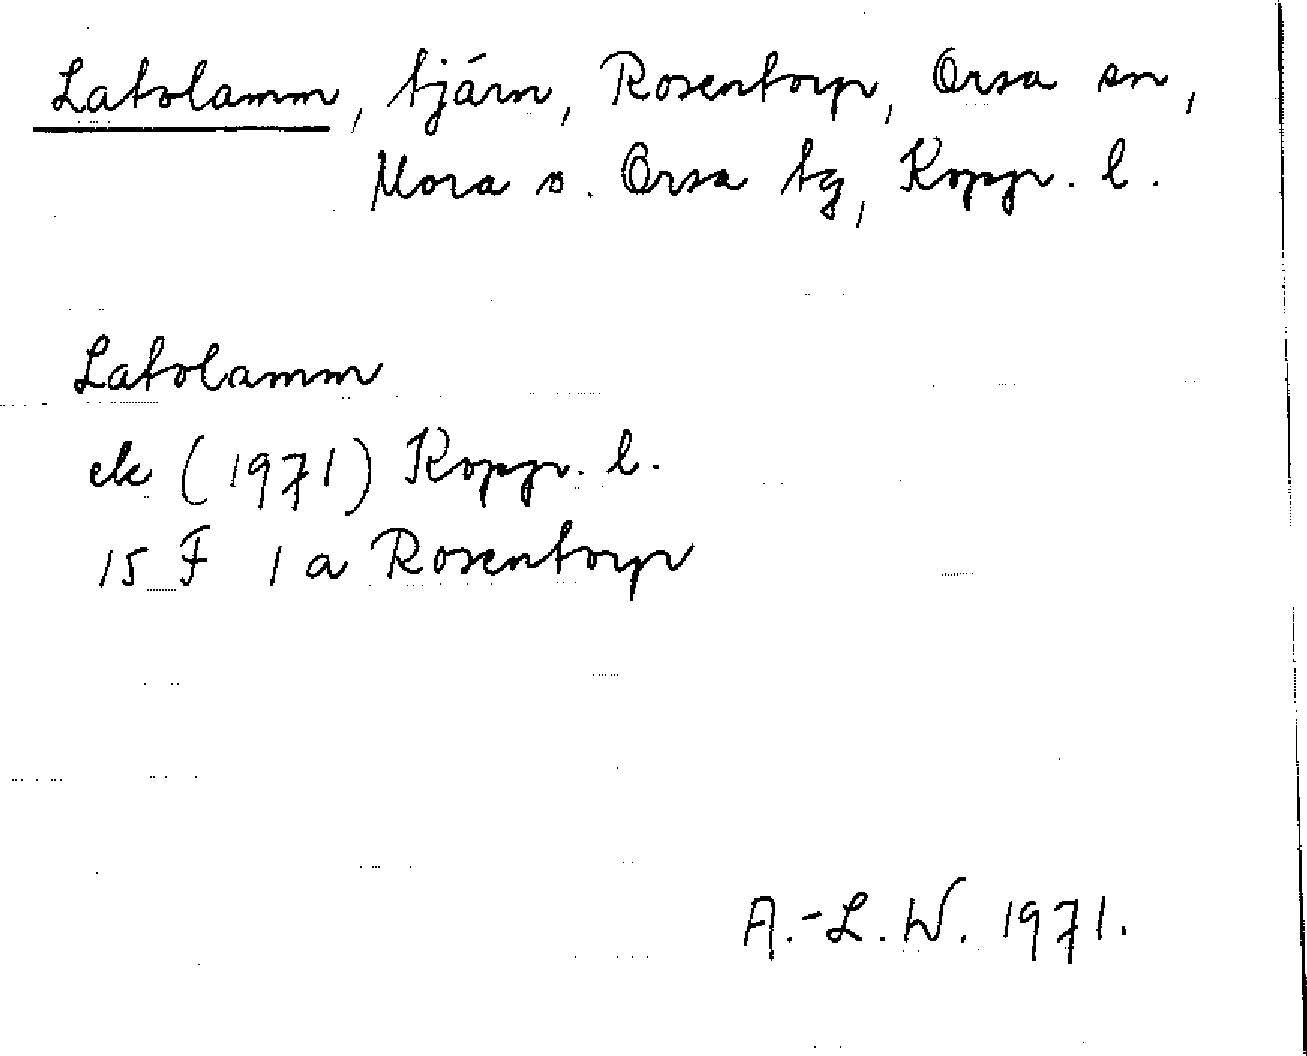 Latolamm, tjärn, Rosentorp, Orsa sn,
Mora o. Orsa tg, Koppr. l.
Latolamm
ek (1971) Koppr. l.
15 F 1 a Rosentorp
A.-L. W. 1971.